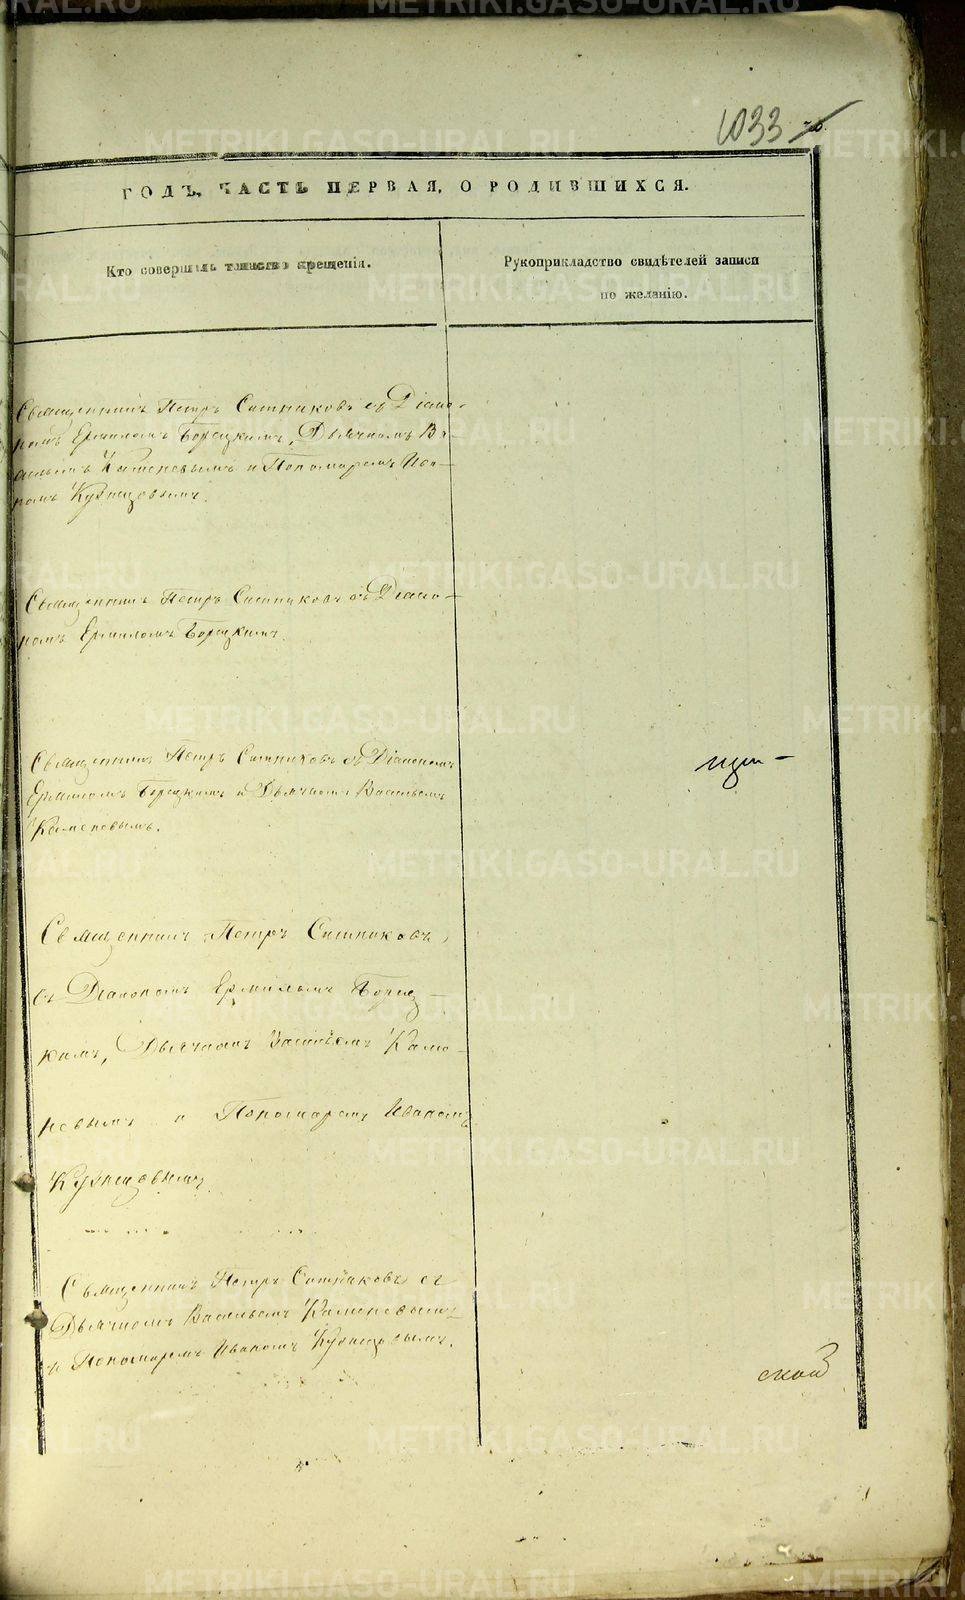 1033
ГОДЪ, ЧАСТЬ ПЕРВАЯ, О РОДИВШИХСЯ.
Кто совершалъ таинство крещенія.
Рукоприкладство свидѣтелей записи
по желанію.
Священникъ Петръ Ситниковъ съ Діако-
номъ Ермиломъ Борецкимъ, Дьячкомъ Ва-
сильемъ Каменевымъ и Пономаремъ Ива-
номъ Кузнецовымъ.
Священникъ Петръ Ситниковъ съ Діако-
номъ Ермиломъ Борецкимъ.
Священникъ Петръ Ситниковъ съ Діакономъ
Ермиломъ Борецкимъ и Дьячкомъ Васильемъ
Каменевымъ.
Священникъ Петръ Ситниковъ,
съ Діакономъ Ермиломъ Борец-
кимъ, Дьячкомъ Васильемъ Каме-
невымъ и Пономаремъ Иваномъ
Кузнецовымъ
Священникъ Петръ Ситниковъ съ
Дьячкомъ Васильемъ Каменевымъ
и Пономаремъ Иваномъ Кузнецовымъ.
ской
METRIKI.GASO-URAL.RU